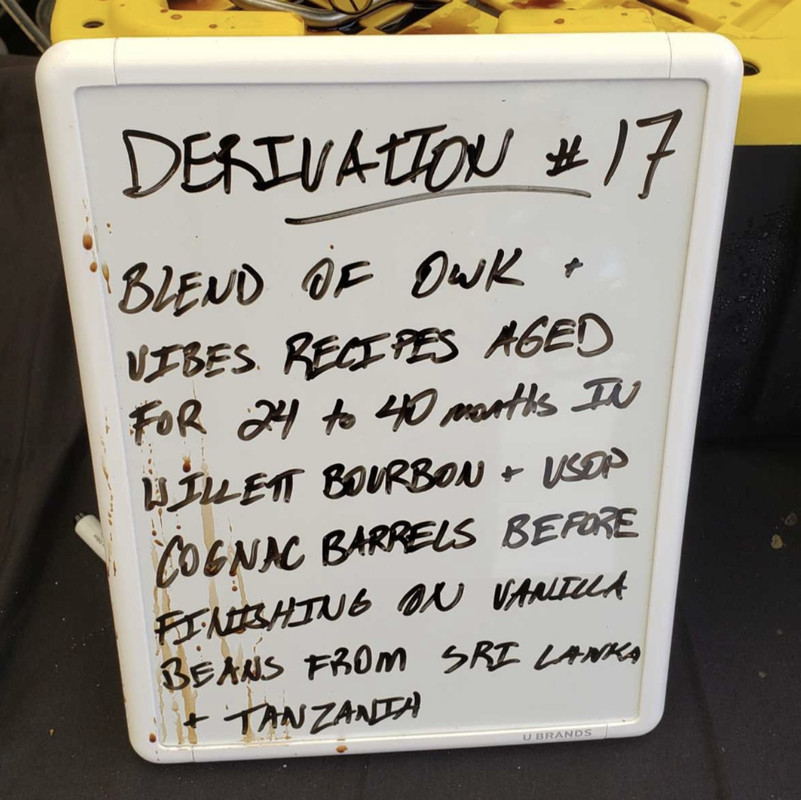 DERIVATION #17
BLEND OF OWK +
VIBES RECIPES AGED
FOR 24 to 40 months IN
WILLETT BOURBON + VSOP
COGNAC BARRELS BEFORE
FINISHING ON VANILLA
BEANS FROM SRI LANKA
+ TANZANIA
U BRANDS